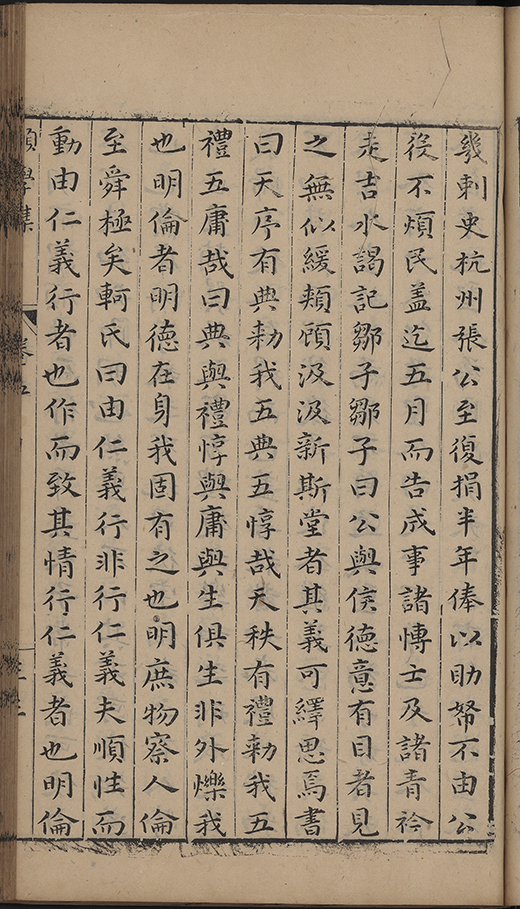 幾刺史杭州張公至復捐半年俸以助帑不由公
役不煩民盖迄五月而告成事諸博士及諸青衿
走吉水謁記鄒子鄒子曰公與侯德意有目者見
之無似緩頰顧汲汲新斯堂者其義可繹思焉書
曰天序有典勑我五典五惇哉天秩有禮勑我五
禮五庸哉曰典與禮惇與庸與生俱生非外爍我
也明倫者明德在身我固有之也明庶物察人倫
至舜極矣軻氏曰由仁義行非行仁義夫順性而
動由仁義行者也作而致其情行仁義者也明倫
願學集